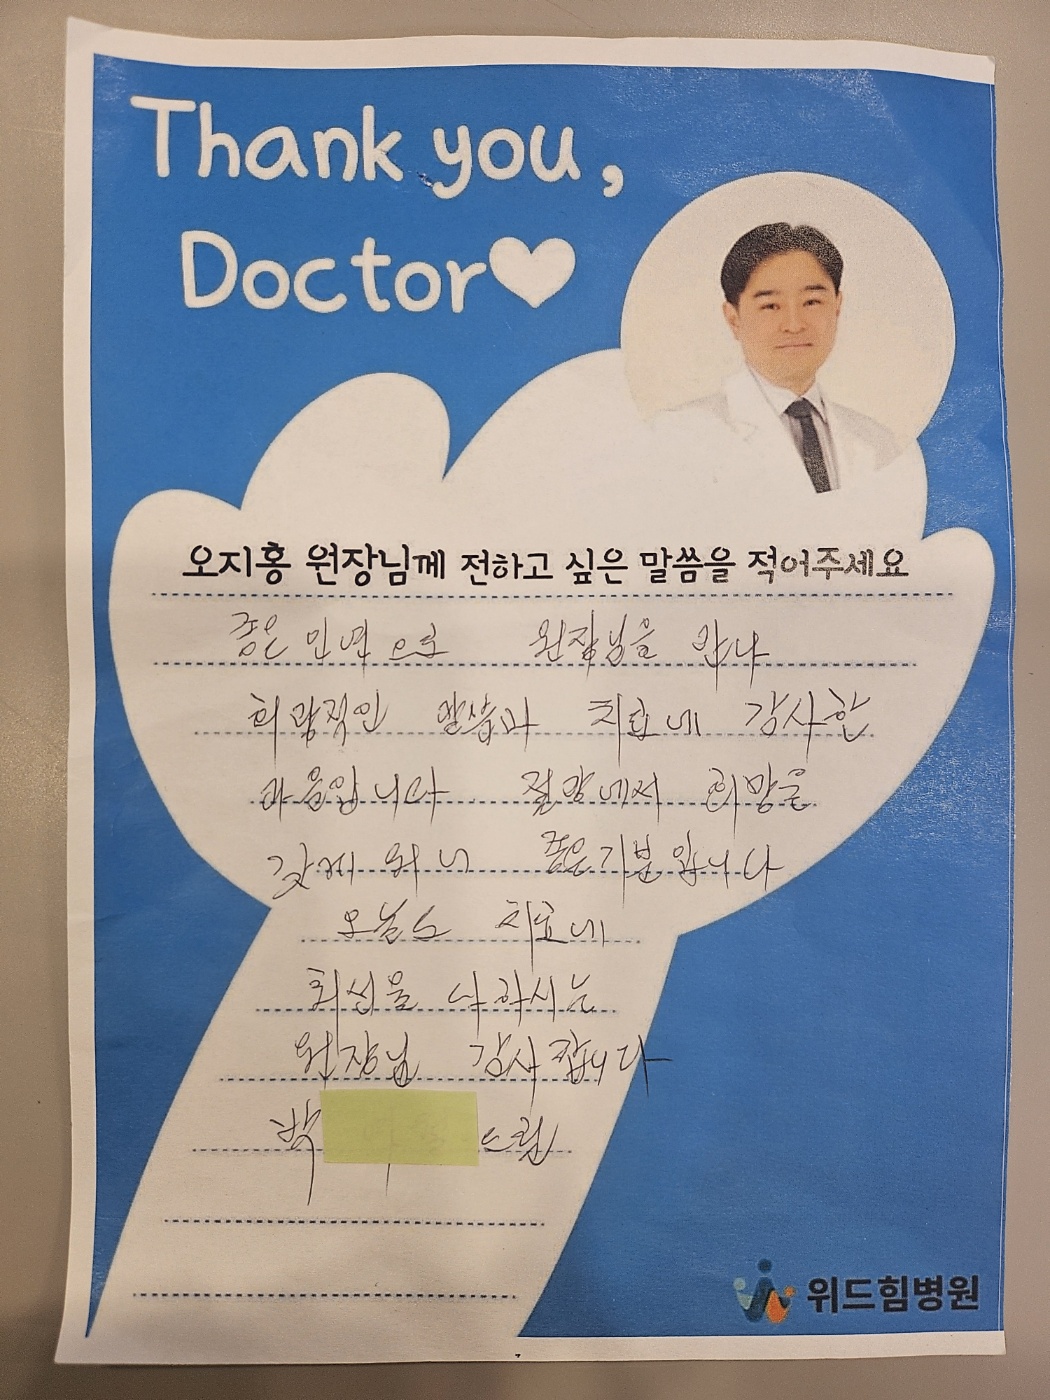 Thank you,
Doctor♥
오지홍 원장님께 전하고 싶은 말씀을 적어주세요
좋은 인연으로 원장님을 만나
희망적인 말씀과 치료에 감사한
마음입니다 절망에서 희망을
갖게 되니 좋은기분입니다
오늘도 치료에
최선을 다하시는
원장님 감사합니다
박 드림
위드힘병원